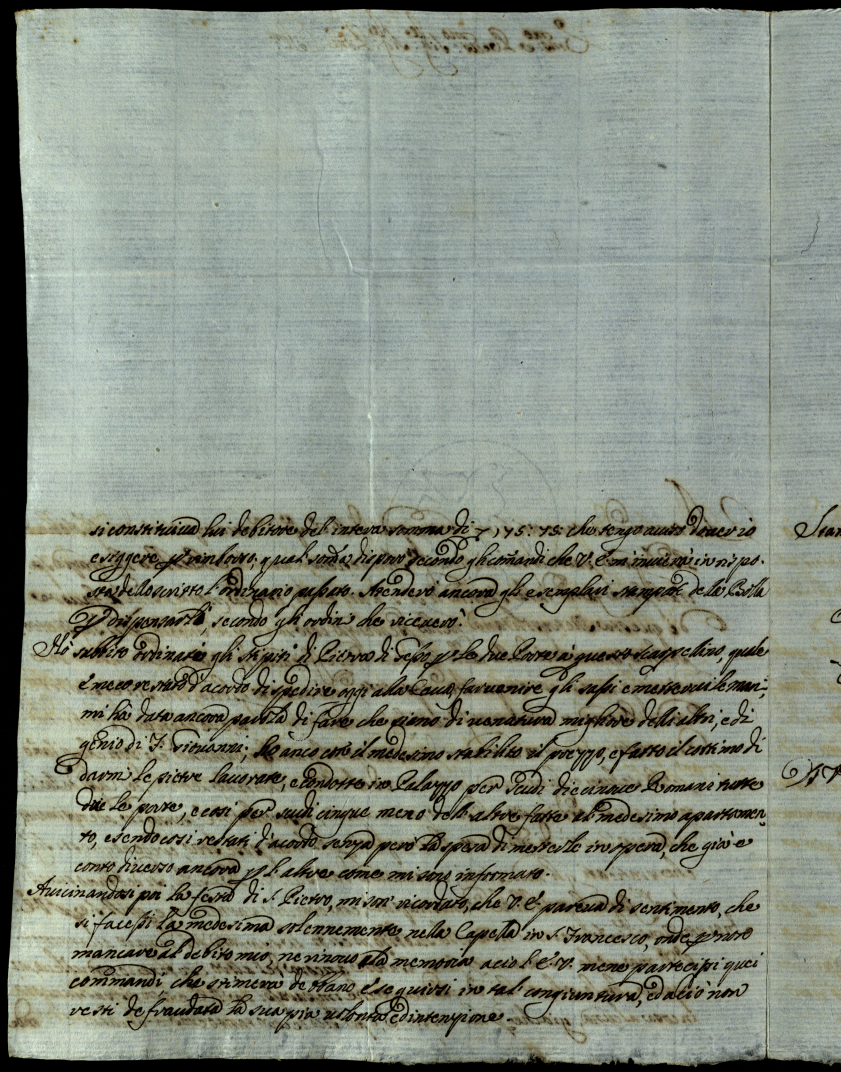 si constituiua lui debitore dell'intera somma di 7175:75: che tengo auiso deuersi
esiggere p rimborso, qual somma disporrò secondo gli comandi che V. E. m'inuierà in rispo-
sta dello scritto l'ordinario passato. Attenderò ancora gli esemplari stampati della Bolla
p dispensarli, secondo gli ordini che riceuerò.
Hò subito ordinate gli stipiti di Pietra di Gesso p le due Porte à questo Scarpellino, quale
è meco restato d'acordo di spedire oggi alla Caua, far uenire gli sassi e metterui le mani,
mi hà data ancora parola di fare che siano di uenatura migliore delli altri, e di
genio di S. Giouanni; hò anco con il medesimo stabilito il prezzo, e fatto il cottimo di
darmi le pietre lauorate, e condotte in Palazzo per scudi diecinoue Romani tutte
due le porte, e cosi per scudi cinque meno dell'altre fatte al medesimo apartamen-
to, esendo cosi restati d'acordo senza però la spesa di metterle in opera, che già è
conto diuerso ancora p l'altre come mi sono informato.
Auicinandosi poi la festa di S. Pietro, mi son ricordato, che V. E. pareua di sentimento, che
si facessi la medesima solennemente nella Capella in S. Francesco, onde p non
mancare al debito mio, ne rinouo la memoria acio l'E. V. mene partecipi quei
commandi che stimerà deuano eseguirsi in tal congiuntura, ed acio non
resti defraudata la sua pia uolontà ed intenzione.